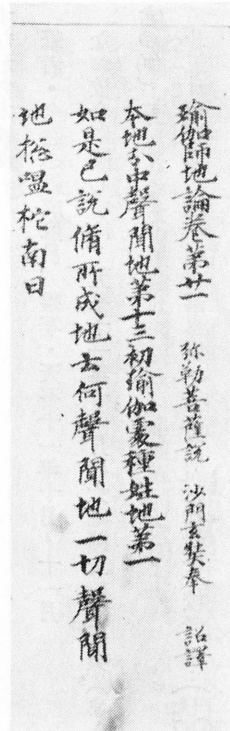 瑜伽師地論卷苐廿一 弥勒菩薩説 沙門玄奘奉 詔譯
本地分中聲聞地苐十三初瑜伽處種姓地苐一
如是已說脩所成地云何聲聞地一切聲聞
地揔嗢柁南曰